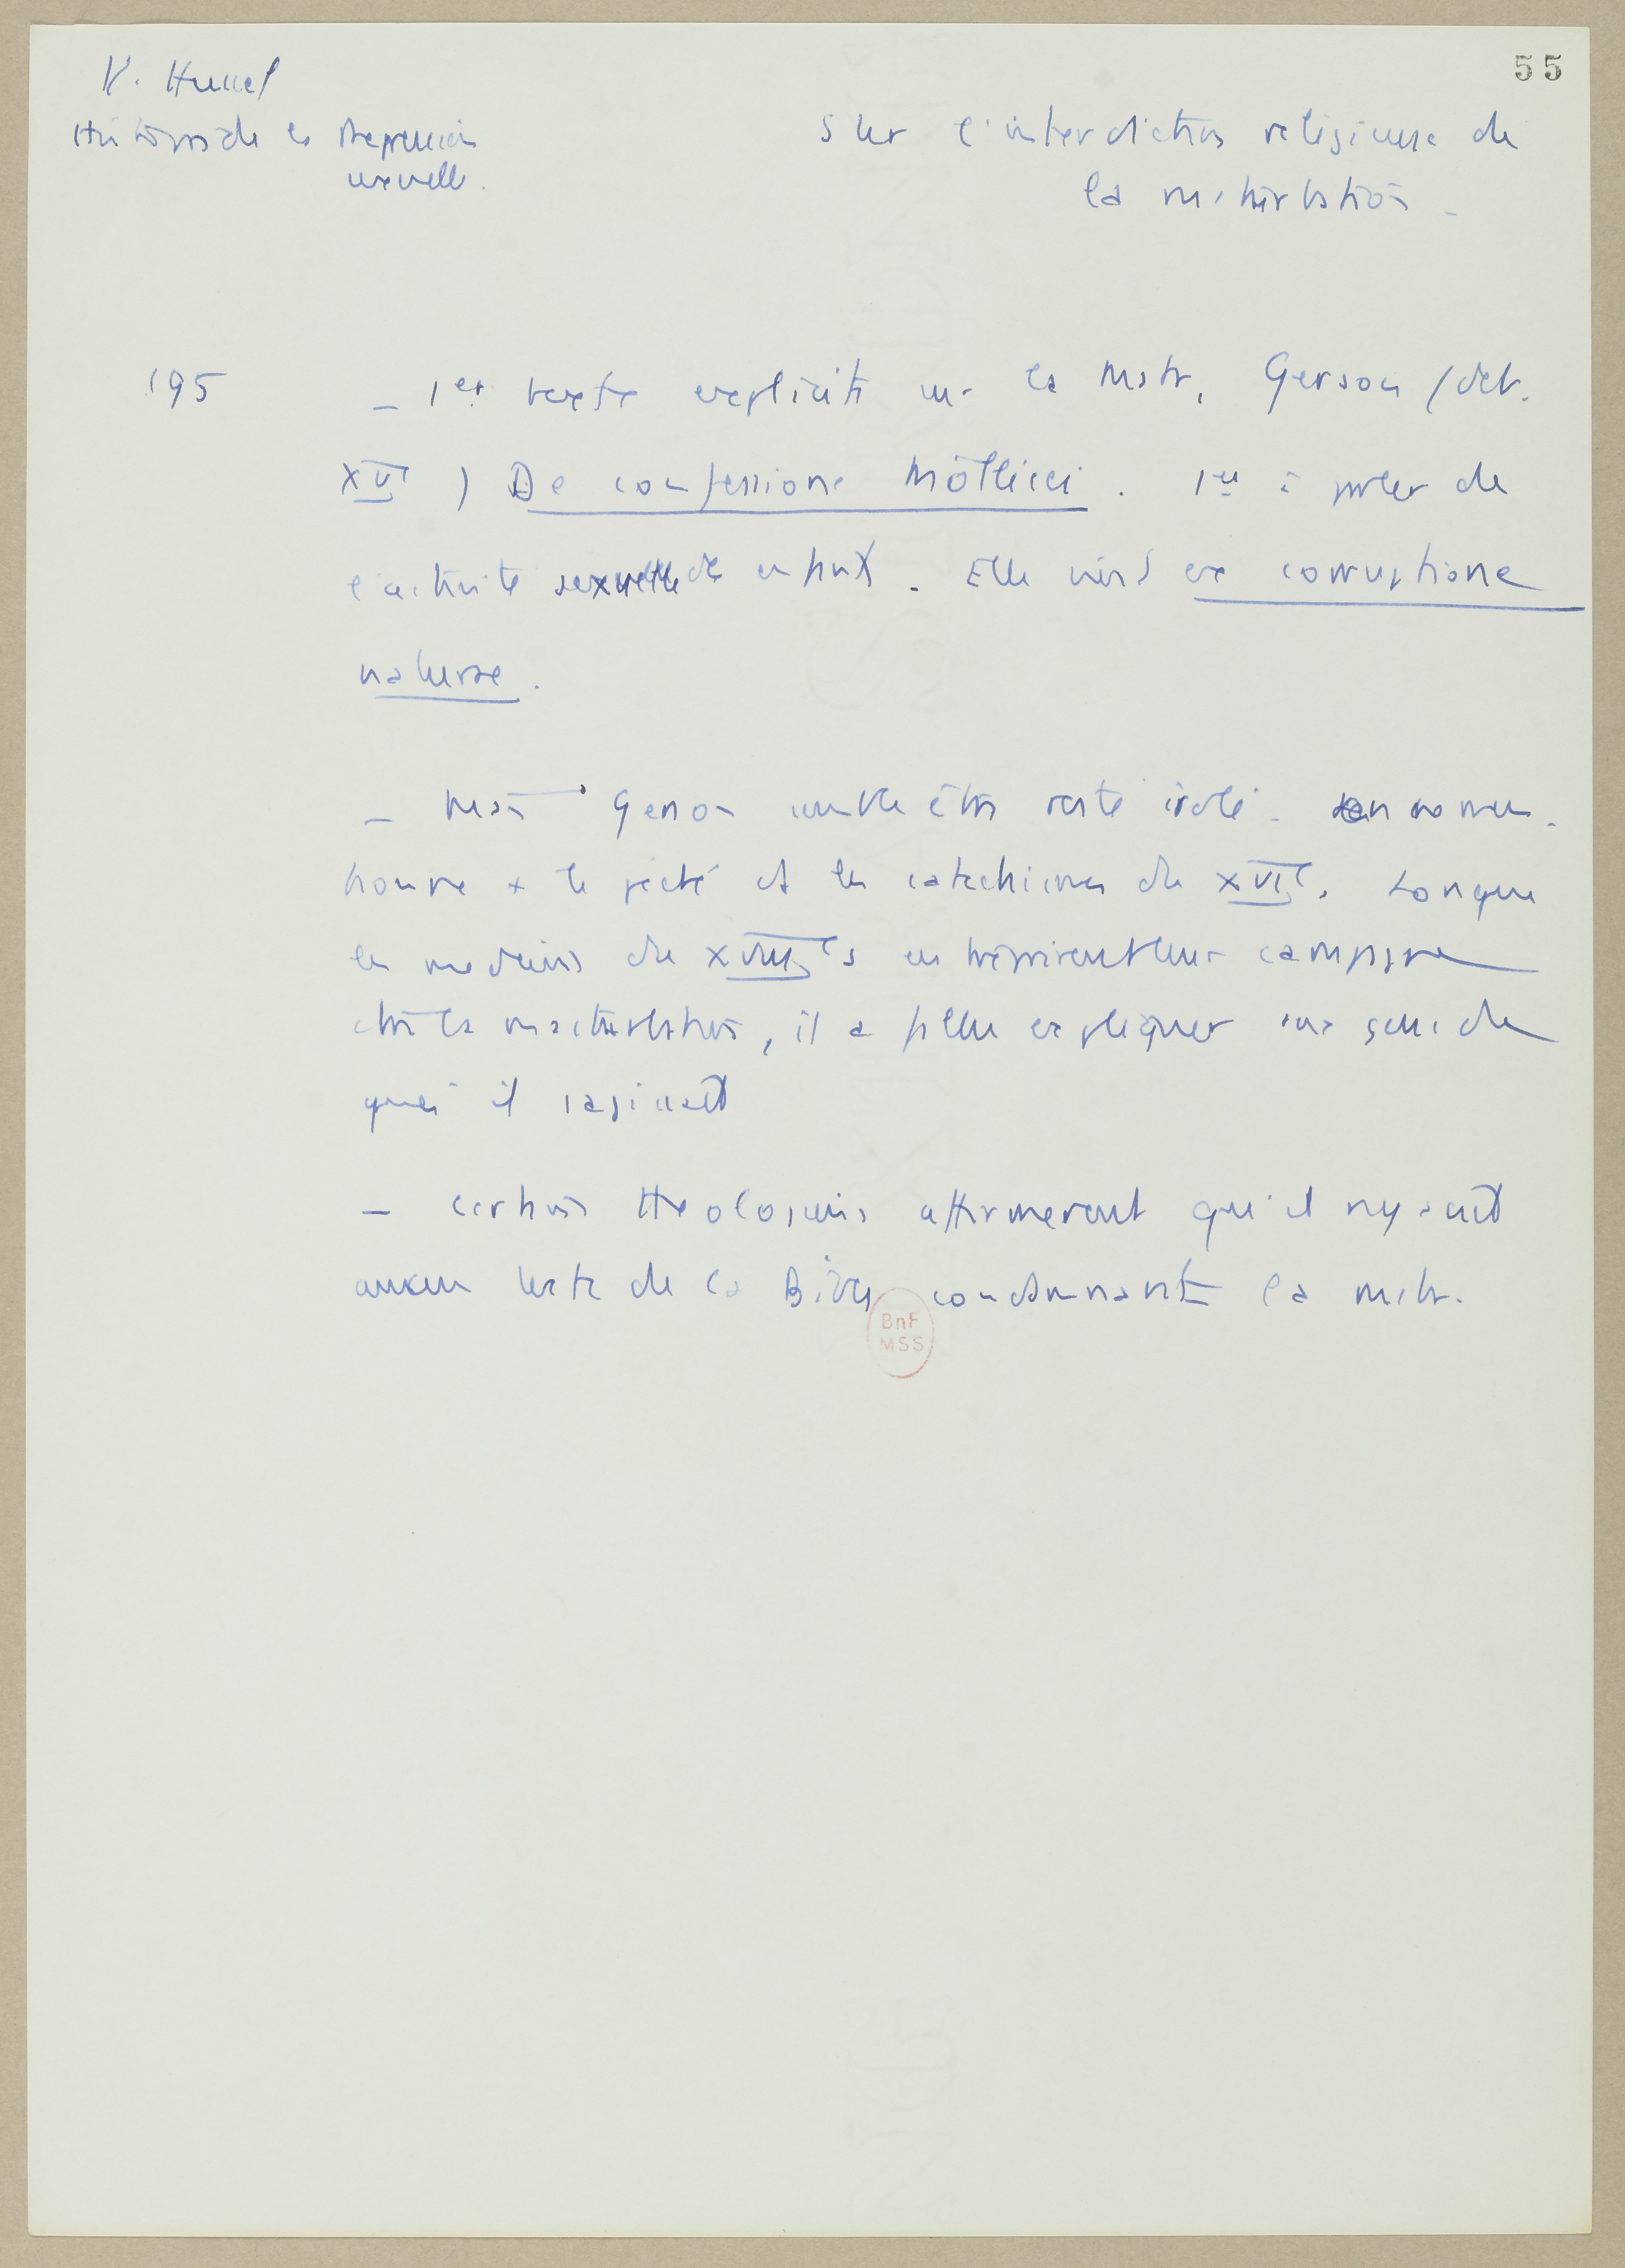 55
V. Hunel
Histoire de la Repression
sexuelle.
Sur l'interdiction religieuse de
la masturbation.
195
– 1er texte explicite sur la Mstr, Gerson (deb.
XVe) De confessione Mollicei. 1er à parler de
l'activité sexuelle de enfants. Elle vient ex corruptione
naturae.
– Mais Gerson semble être resté isolé.
trouve + le péché ds les catechismes du XVIe. Lorsque
les medecins du XVIIIes entreprirent leur campagne
ctre la masturbation, il a fallu expliquer aux gens de
quoi il s'agissait
– Certains theologiens affirmerent qu'il n'y avait
aucun texte de la Bible condamnant la mstr.
BnF
MSS